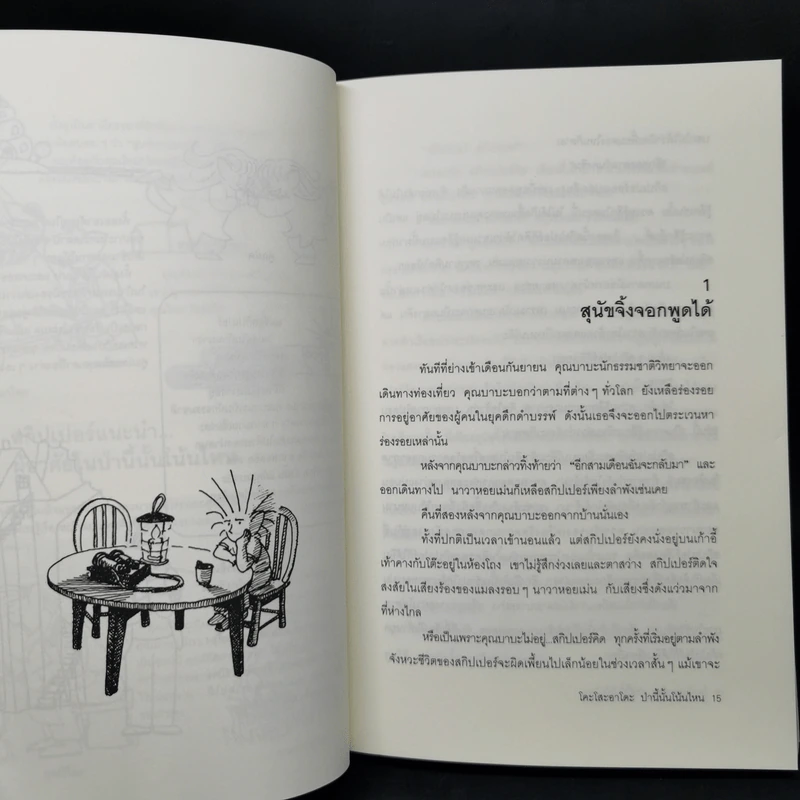 1
สุนัขจิ้งจอกพูดได้
ทันทีที่ย่างเข้าเดือนกันยายน คุณบาบะนักธรรมชาติวิทยาจะออก
เดินทางท่องเที่ยว คุณบาบะบอกว่าตามที่ต่างๆ ทั่วโลก ยังเหลือร่องรอย
การอยู่อาศัยของผู้คนในยุคดึกดำบรรพ์ ดังนั้นเธอจึงจะออกไปตระเวนหา
ร่องรอยเหล่านั้น
หลังจากคุณบาบะกล่าวทิ้งท้ายว่า “อีกสามเดือนฉันจะกลับมา” และ
ออกเดินทางไป นาวาหอยเม่นก็เหลือสกิปเปอร์เพียงลำพังเช่นเคย
คืนที่สองหลังจากคุณบาบะออกจากบ้านนั่นเอง
ทั้งที่ปกติเป็นเวลาเข้านอนแล้ว แต่สกิปเปอร์ยังคงนั่งอยู่บนเก้าอี้
เท้าคางกับโต๊ะอยู่ในห้องโถง เขาไม่รู้สึกง่วงเลยและตาสว่าง สกิปเปอร์ติดใจ
สงสัยในเสียงร้องของแมลงรอบๆ นาวาหอยเม่น กับเสียงซึ่งดังแว่วมาจาก
ที่ห่างไกล
หรือเป็นเพราะคุณบาบะไม่อยู่...สกิปเปอร์คิด ทุกครั้งที่เริ่มอยู่ตามลำพัง
จังหวะชีวิตของสกิปเปอร์จะผิดเพี้ยนไปเล็กน้อยในช่วงเวลาสั้นๆ แม้เขาจะ
โคะโสะอาโดะ ป่านี้นั้นโน้นไหน 15